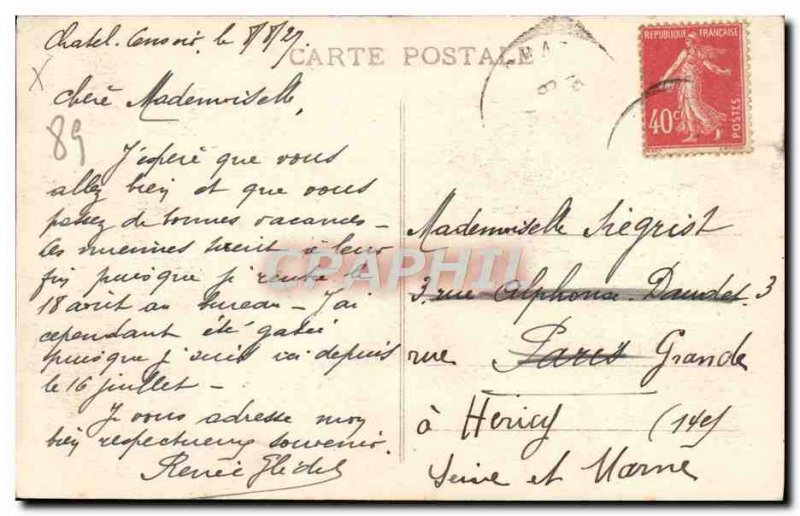 Chatel-Censoir, le 8/8/27.
CARTE POSTALE
REPUBLIQUE FRANÇAISE
40c
POSTES
Chère Mademoiselle,
89
J'espère que vous
allez bien et que vous
passez de bonnes vacances –
les miennes tirent à leur
fin puisque je rentre le
18 août au bureau – J'ai
cependant été gatée
puisque je suis ici depuis
le 16 juillet –
Je vous adresse mon
bien respectueux souvenir.
Renée
Mademoiselle Siegrist
3. rue Alphonse Daudet 3
Paris
rue Grande
à Héricy (14e)
Seine et Marne
CPAPHIL